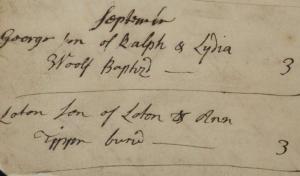 September
George son of Ralph & Lydia
Woolf Baptiz'd — 3
Loton son of Loton & Ann
Tipper buried — 3